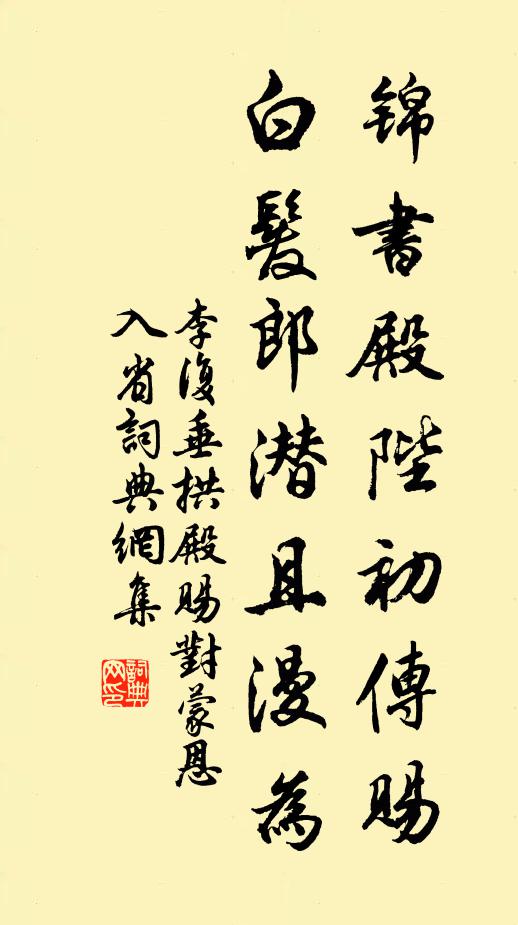 錦書殿陛初傳賜
白髮郎潜且漫為
李復垂拱殿賜對蒙恩
入省詞典網集
詞典網印